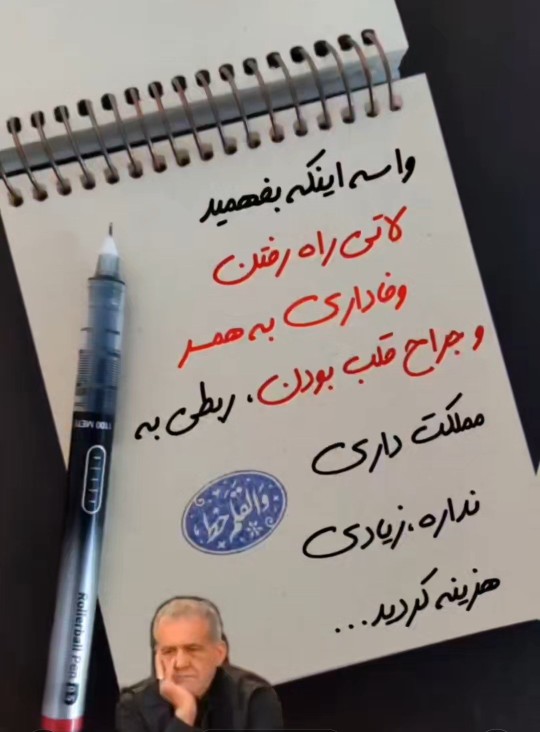 واسه اینکه بفهمید
لاتی راه رفتن
وفاداری به همسر
و جراح قلب بودن، ربطی به
مملکت داری
نداره، زیادی
هزینه کردید...
والقلم خط
1100 METE
Rollerball Pen